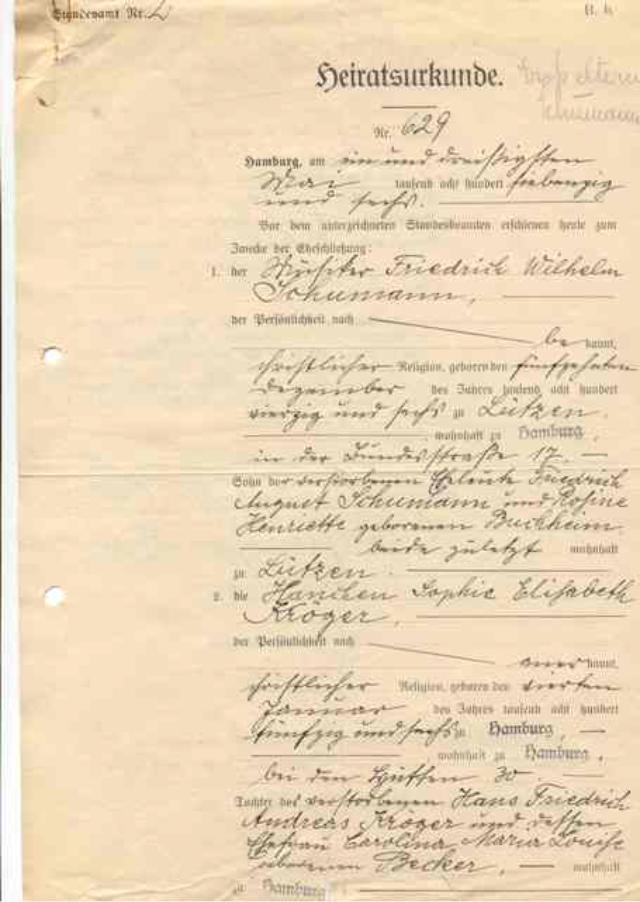 Standesamt Nr. 2
B. h
Heiratsurkunde.
Schumann
Nr. 629
Hamburg, am ein und dreißigsten
Mai tausend acht hundert siebenzig
und sechs.
Vor dem unterzeichneten Standesbeamten erschienen heute zum
Zwecke der Eheschließung:
1. der Friedrich Wilhelm
Schumann,
der Persönlichkeit nach
be kannt,
christlicher Religion, geboren den fünfzehnten
Dezember des Jahres tausend acht hundert
vierzig und sechs zu Lützen
, wohnhaft zu Hamburg,
in der Bundesstraße 17.
Sohn der verstorbenen Eheleute Friedrich
August Schumann und Rosine
Henriette geborenen Buchheim
beide zuletzt wohnhaft
zu Lützen.
2. die Hanchen Sophie Elisabeth
Kröger,
der Persönlichkeit nach
aner kannt,
christlicher Religion, geboren den vierten
Januar des Jahres tausend acht hundert
fünfzig und sechs zu Hamburg,
, wohnhaft zu Hamburg,
bei den Hütten 30
Tochter des verstorbenen Hans Friedrich
Andreas Kröger und dessen
Ehefrau Carolina Maria Louise
geborenen Becker, wohnhaft
zu Hamburg